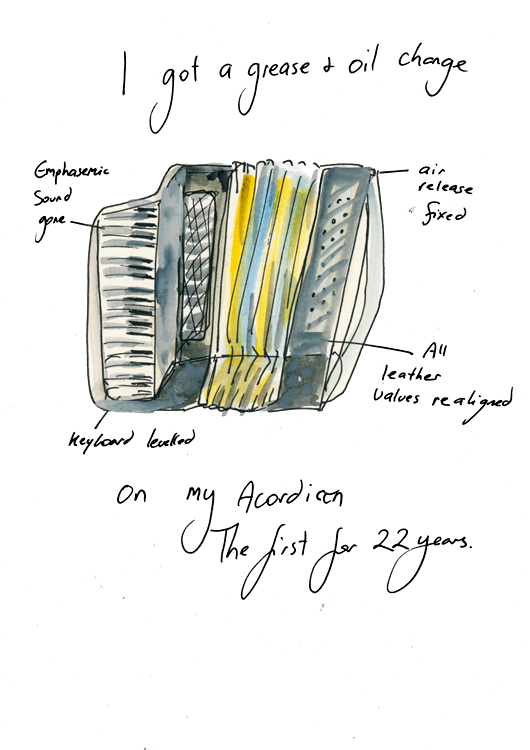 I got a grease & oil change
Emphasemic
Sound
gone
air
release
fixed
All
leather
Valves realigned
Keyboard levelled
on my Acordian
The first for 22 years.